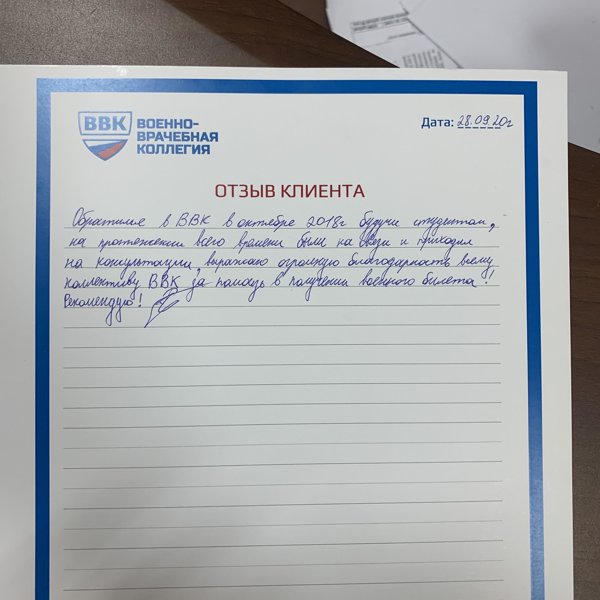 ВВК
ВОЕННО-
ВРАЧЕБНАЯ
КОЛЛЕГИЯ
Дата: 28.09.20г
ОТЗЫВ КЛИЕНТА
Обратился в ВВК в октябре 2018г будучи студентом,
на протяжении всего времени были на связи и приходил
на консультации, выражаю огромную благодарность всему
коллективу ВВК за помощь в получении военного билета!
Рекомендую!